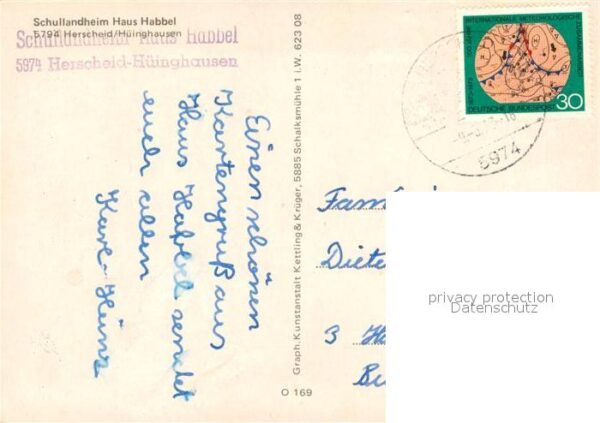 Schullandheim Haus Habbel
5794 Herscheid/Hüinghausen
Schullandheim Haus Habbel
5974 Herscheid-Hüinghausen
Einen schönen
Kartengruß aus
Haus Habbel sendet
euch allen
Karl-Heinz
Graph. Kunstanstalt Kettling & Krüger, 5885 Schalksmühle 1 i.W. 623 08
O 169
100 JAHRE INTERNATIONALE METEOROLOGISCHE ZUSAMMENARBEIT
1873-1973
DEUTSCHE BUNDESPOST 30
5974
Fam
Diete
3 H
privacy protection
Datenschutz